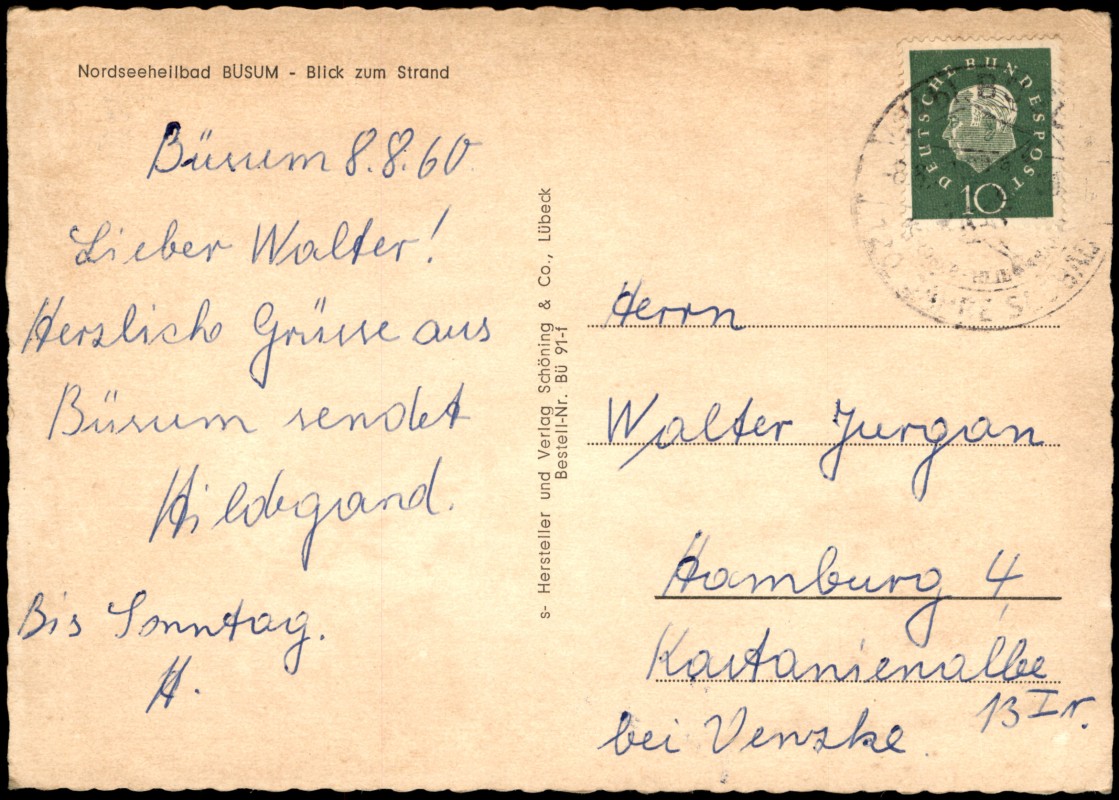 Nordseeheilbad BÜSUM - Blick zum Strand
Büsum 8.8.60
Lieber Walter!
Herzlich Grüsse aus
Büsum sendet
Hildegand.
Bis Sonntag.
H.
s- Hersteller und Verlag Schöning & Co., Lübeck
Bestell-Nr. Bü 91-f
DEUTSCHE BUNDESPOST
10
Herrn
Walter Jurgan
Hamburg 4
Kastanienallee
13 I r.
bei Venzke